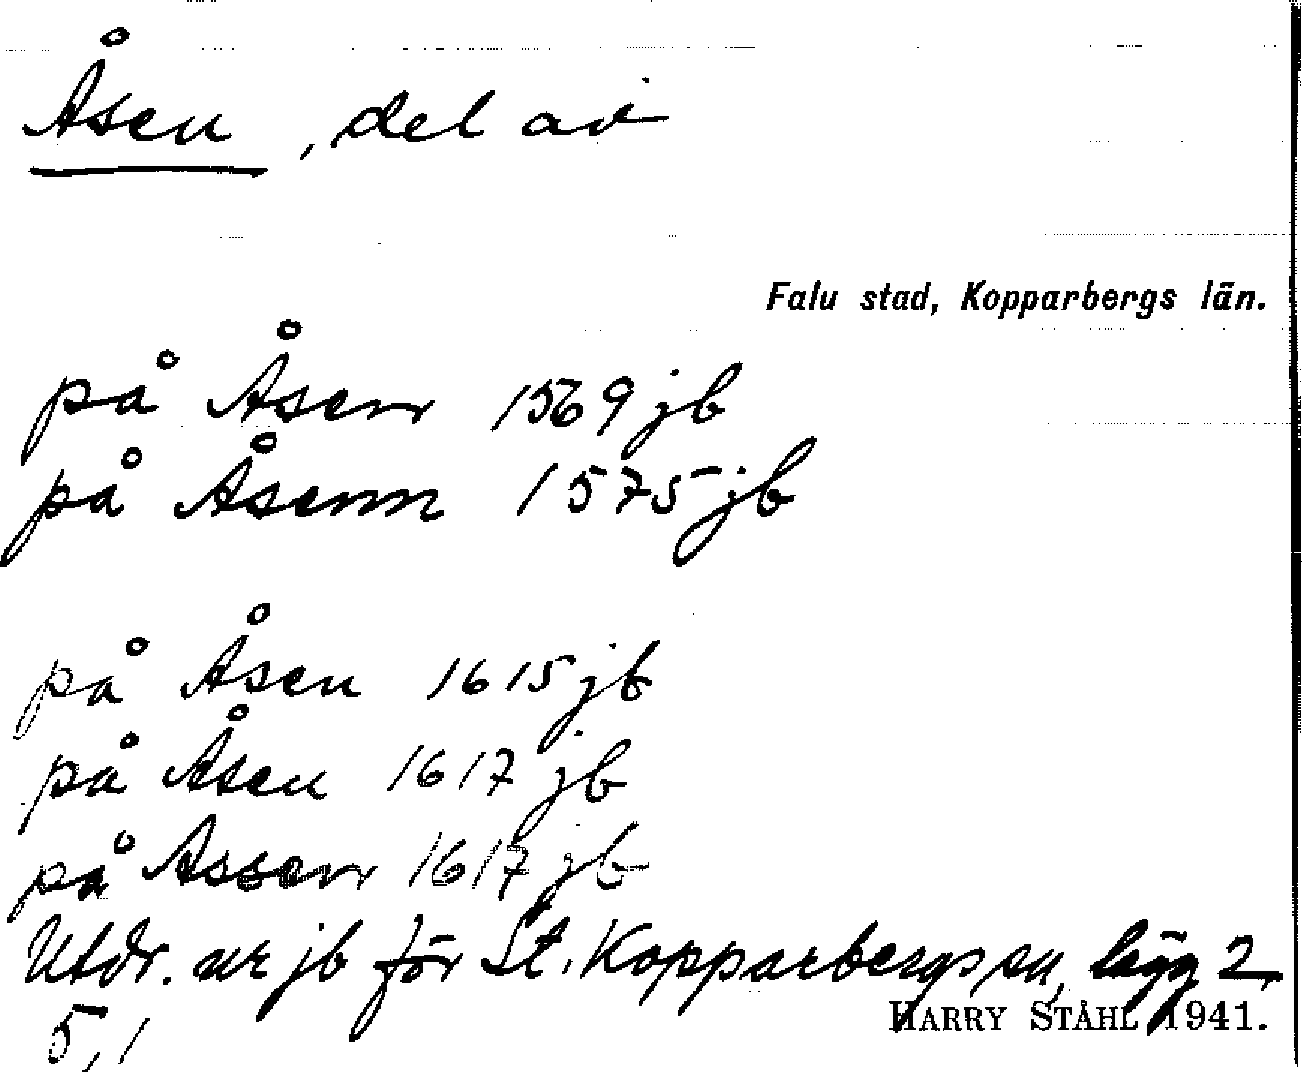 Åsen, del av
Falu stad, Kopparbergs län.
på Åsen 1569 jb
på Åsenn 1575 jb
på Åsen 1615 jb
på Åsen 1617 jb
på Assen 1617 jb
Utdr. ur jb för St. Kopparbergs sn, lägg 2,
5, 1
HARRY STÅHL 1941.